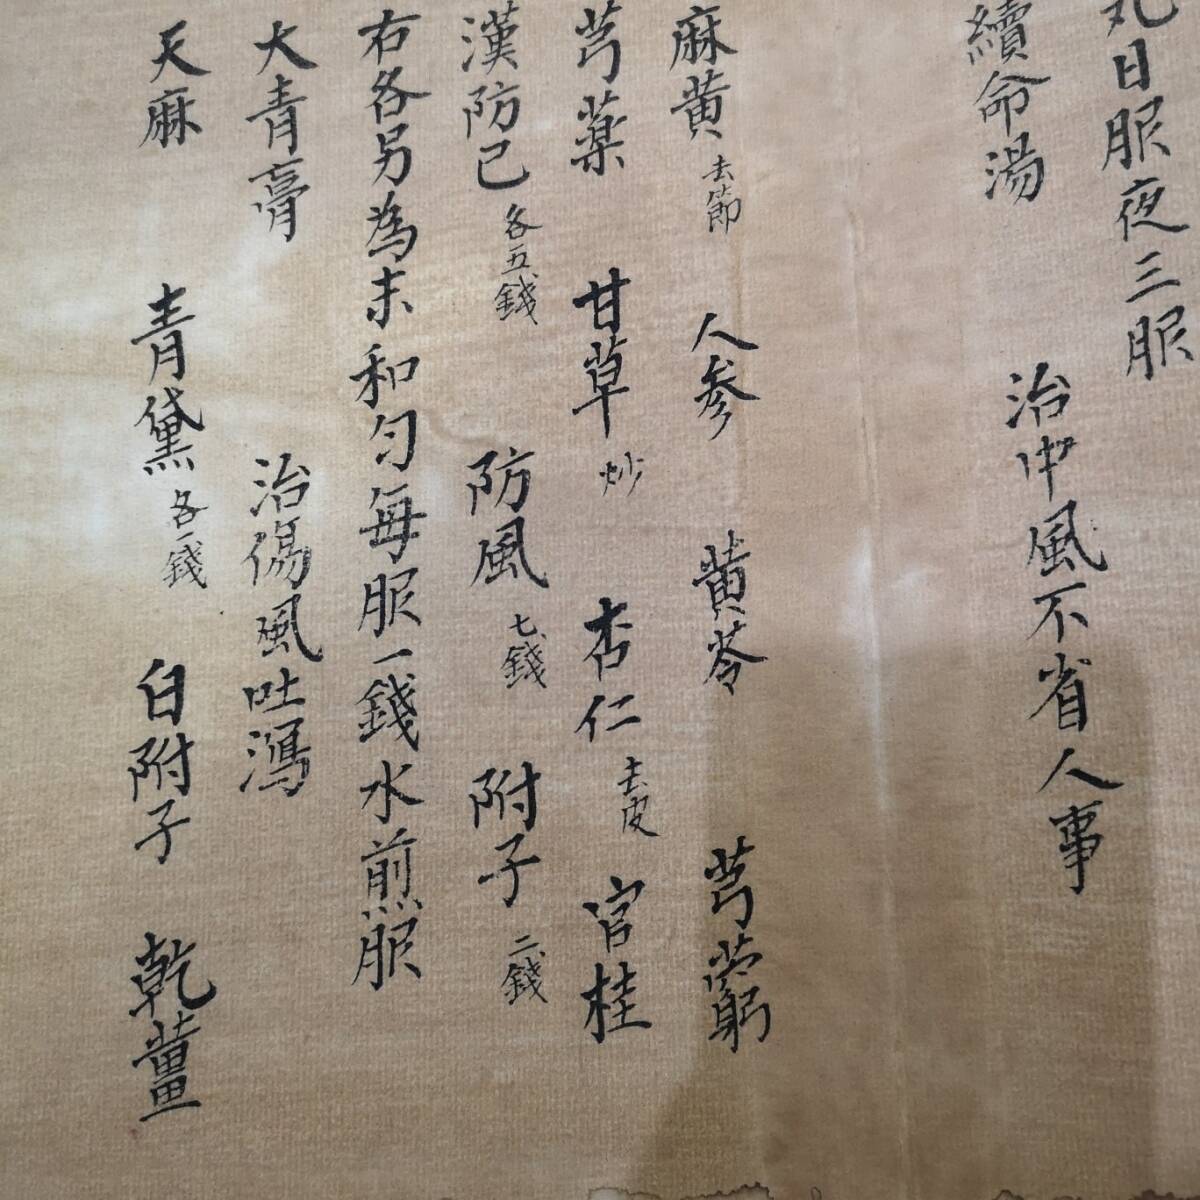 丸日服夜三服
續命湯 治中風不省人事
麻黄去節 人参 黄芩 芎藭
芍薬 甘草炒 杏仁去皮 官桂
漢防己各五錢 防風七錢 附子二錢
右各另為末和匀每服一錢水煎服
大青膏 治傷風吐瀉
天麻 青黛各一錢 白附子 乾薑